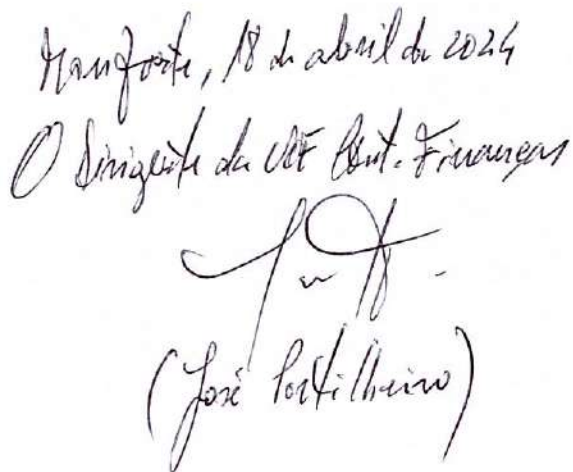 Monforte, 18 de abril de 2024
O Dirigente da Cont. Finanças
(José Portilheiro)